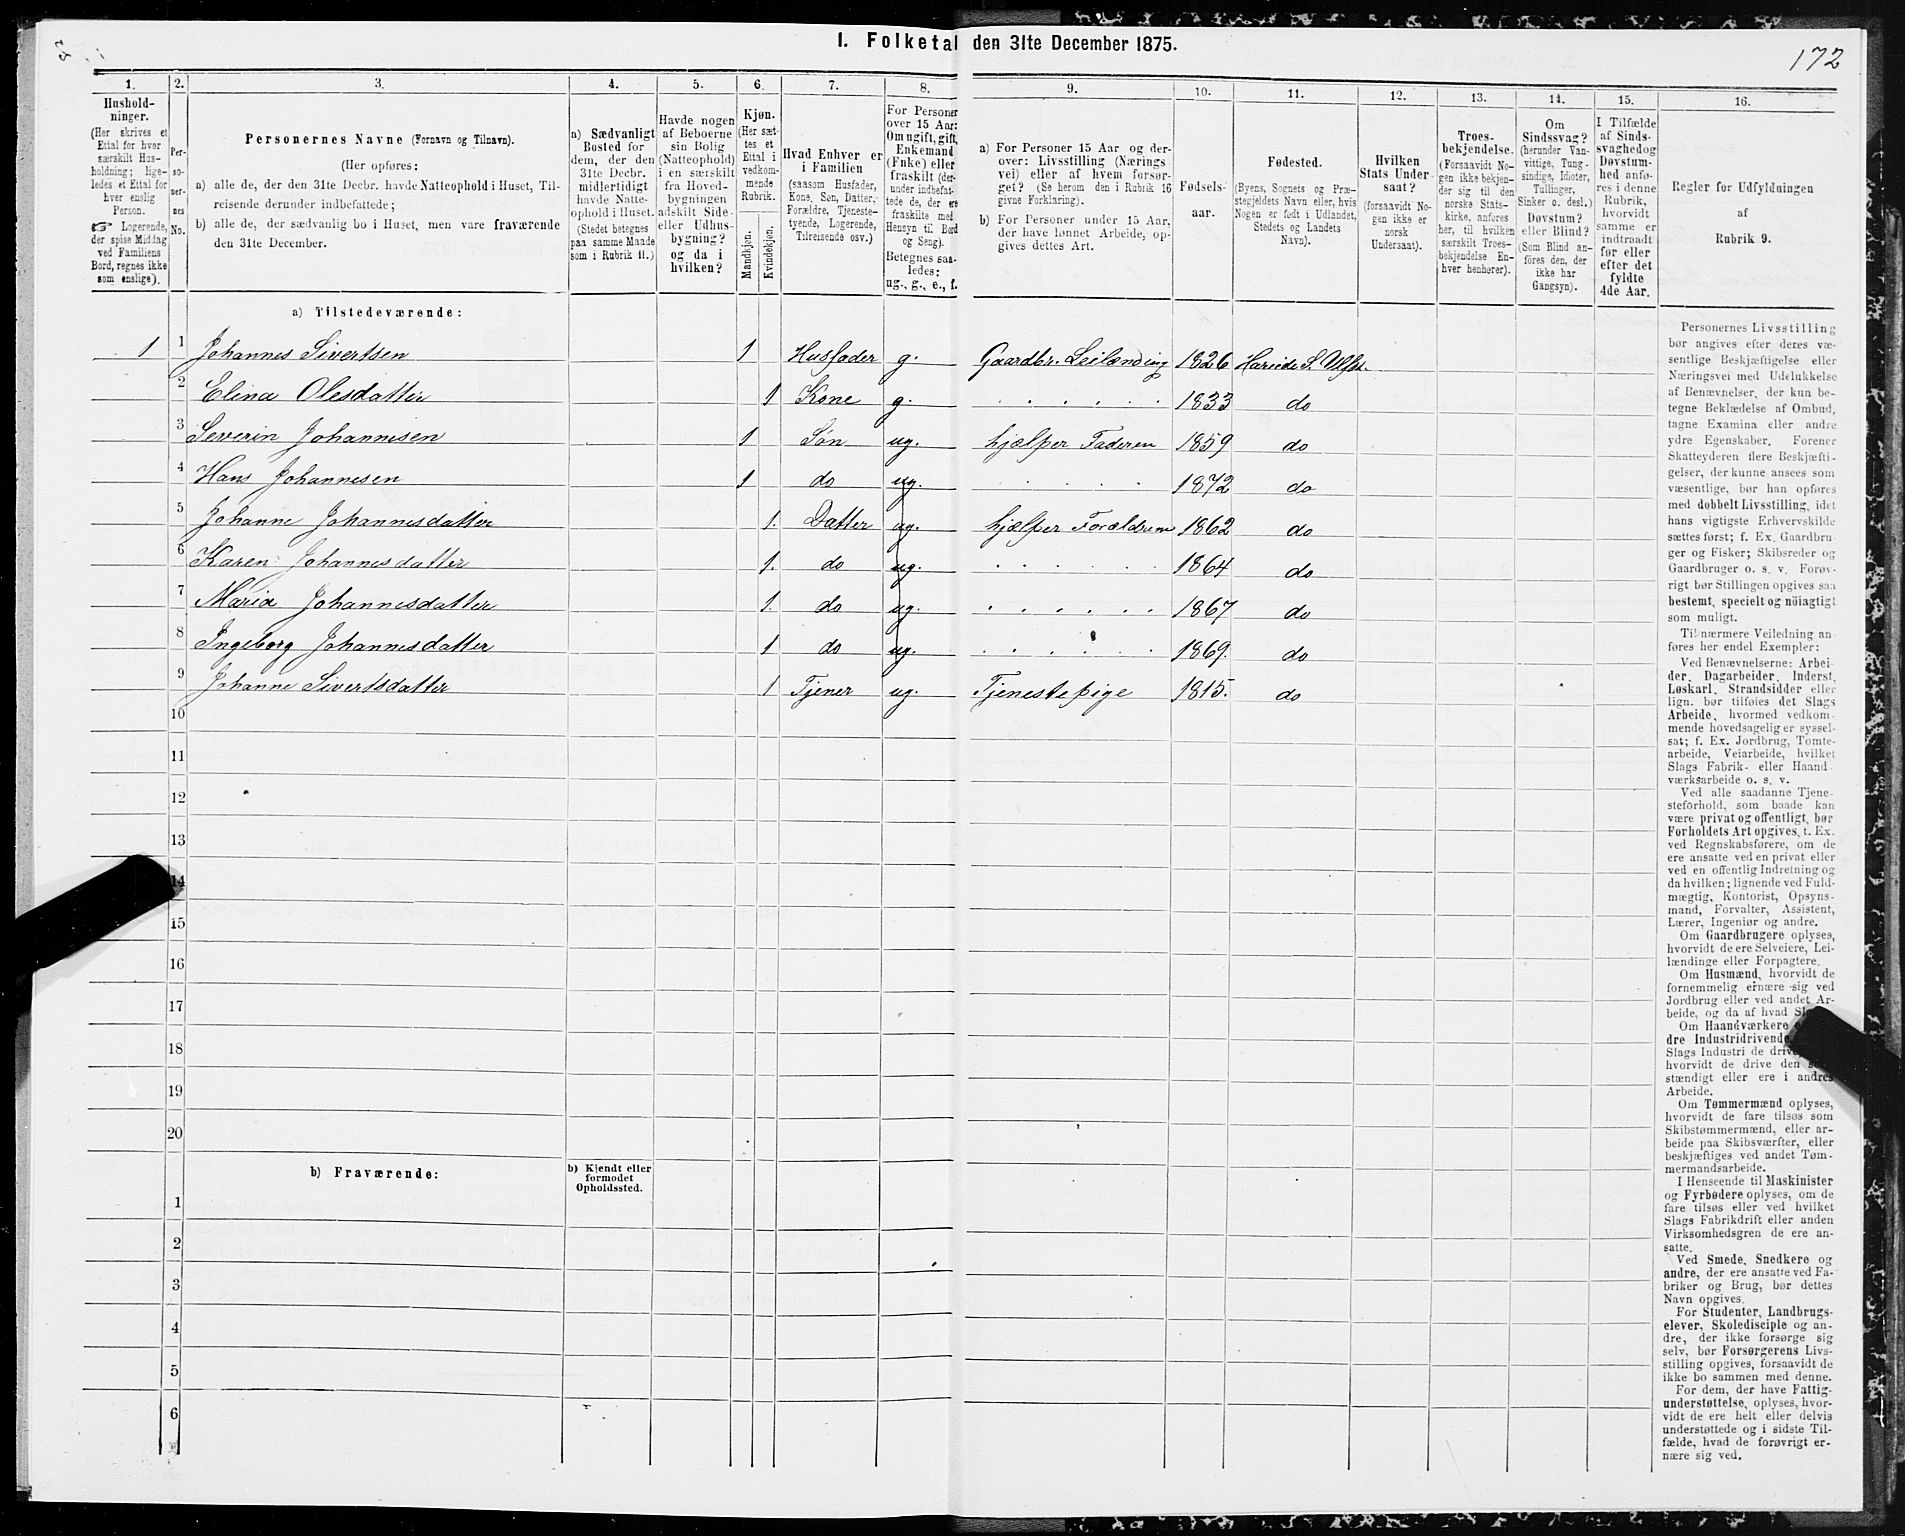 I. Folketal den 31te December 1875.
172
1.
2.
3.
4.
5.
6.
7.
8.
9.
10.
11.
12.
13.
14.
15.
16.
Hushold-
ninger.
(Her skrives et
Ettal for hver
særskilt Hus-
holdning; lige-
ledes et Ettal for
hver enslig
Person.
☞ Logerende,
der spise Middag
ved Familiens
Bord, regnes ikke
som enslige).
Per-
so-
ner-
nes
No.
Personernes Navne (Fornavn og Tilnavn).
(Her opføres:
a) alle de, der den 31te Decbr. havde Natteophold i Huset, Til-
reisende derunder indbefattede;
b) alle de, der sædvanlig bo i Huset, men vare fraværende
den 31te December.
a) Sædvanligt
Bosted for
dem, der den
31te Decbr.
midlertidigt
havde Natte-
ophold i Huset.
(Stedet betegnes
paa samme Maade
som i Rubrik 11.)
Havde nogen
af Beboerne
sin Bolig
(Natteophold)
i en særskilt
fra Hoved-
bygningen
adskilt Side-
eller Udhus-
bygning?
og da i
hvilken?
Kjøn.
(Her sæt-
tes et
Ettal i
vedkom-
mende
Rubrik.
Mandkjøn.
Kvindekjøn.
Hvad Enhver er
i Familien
(saasom Husfader,
Kone, Søn, Datter,
Forældre, Tjeneste-
tyende, Logerende,
Tilreisende osv.)
For Personer
over 15 Aar:
Om ugift, gift,
Enkemand
(Enke) eller
fraskilt (der-
under indbefat-
tede de, der ere
fraskilte med
Hensyn til Bord
og Seng).
Betegnes saa-
ledes:
ug., g., e., f.
a) For Personer 15 Aar og der-
over: Livsstilling (Nærings
vei) eller af hvem forsør-
get? (Se herom den i Rubrik 16
givne Forklaring).
b) For Personer under 15 Aar,
der have lønnet Arbeide, op-
gives dettes Art.
Fødsels-
aar.
Fødested.
(Byens, Sognets og Præ-
stegjeldets Navn eller, hvis
Nogen er født i Udlandet,
Stedets og Landets
Navn).
Hvilken
Stats Under-
saat?
(forsaavidt No-
gen ikke er
norsk
Undersaat).
Troes-
bekjendelse.
(Forsaavidt No-
gen ikke bekjen-
der sig til den
norske Stats-
kirke, anføres
her, til hvilken
særskilt Troes-
bekjendelse En-
hver henhører).
Om
Sindssvag?
(herunder Van-
vittige, Tung-
sindige, Idioter,
Tullinger,
Sinker o. desl.)
Døvstum?
eller Blind?
(Som Blind an-
føres den, der
ikke har
Gangsyn).
I Tilfælde
af Sinds-
svaghed og
Døvstum-
hed anfø-
res i denne
Rubrik,
hvorvidt
samme er
indtraadt
før eller
efter det
fyldte
4de Aar.
Regler for Udfyldningen
af
Rubrik 9.
a) Tilstedeværende:
1 1 Johannes Sivertsen 1 Husfader g. Gaardbr. Leilænding 1826 Hareide S. Ulfst.
2 Elina Olesdatter 1 Kone g. . . . . . . 1833 do
3 Severin Johannesen 1 Søn ug. hjælper Faderen 1859 do
4 Hans Johannesen 1 do ug. . . . . . 1872 do
5 Johanne Johannesdatter 1. Datter ug. hjælper Forældrene 1862 do
6 Karen Johannesdatter 1. do ug. . . . . . . 1864 do
7 Maria Johannesdatter 1. do ug. . . . . . . 1867 do
8 Ingeborg Johannesdatter 1 do ug. . . . . . . 1869. do
9 Johanne Sivertsdatter 1 Tjener ug. Tjenestepige 1815. do
10
11
12
13
14
15
16
17
18
19
20
b) Fraværende:
b) Kjendt eller
formodet
Opholdssted.
1
2
3
4
5
6
Personernes Livsstilling
bør angives efter deres væ-
sentlige Beskjæftigelse eller
Næringsvei med Udelukkelse
af Benævnelser, der kun be-
tegne Beklædelse af Ombud,
tagne Examina eller andre
ydre Egenskaber. Forener
Skatteyderen flere Beskjæfti-
gelser, der kunne ansees som
væsentlige, bør han opføres
med dobbelt Livsstilling, idet
hans vigtigste Erhvervskilde
sættes først; f. Ex. Gaardbru-
ger og Fisker; Skibsreder og
Gaardbruger o. s. v. Forøv-
rigt bør Stillingen opgives saa
bestemt, specielt og nöiagtigt
som muligt.
Til nærmere Veiledning an-
føres her endel Exempler:
Ved Benævnelserne: Arbei-
der, Dagarbeider, Inderst,
Løskarl, Strandsidder eller
lign. bør tilføies det Slags
Arbeide, hvormed vedkom-
mende hovedsagelig er syssel-
sat; f. Ex. Jordbrug, Tomte-
arbeide, Veiarbeide, hvilket
Slags Fabrik- eller Haand-
værksarbeide o. s. v.
Ved alle saadanne Tjene-
steforhold, som baade kan
være privat og offentligt, bør
Forholdets Art opgives, t. Ex.
ved Regnskabsførere, om de
ere ansatte ved en privat eller
ved en offentlig Indretning og
da hvilken; lignende ved Fuld-
mægtig, Kontorist, Opsyns-
mand, Forvalter, Assistent,
Lærer, Ingeniør og andre.
Om Gaardbrugere oplyses,
hvorvidt de ere Selveiere, Lei-
lændinge eller Forpagtere.
Om Husmænd, hvorvidt de
fornemmelig ernære sig ved
Jordbrug eller ved andet Ar-
beide, og da af hvad
Om Haandværkere
dre Industridrivende,
Slags Industri de drive,
hvorvidt de drive den
stændigt eller ere i andres
Arbeide.
Om Tømmermænd oplyses,
hvorvidt de fare tilsøs som
Skibstømmermænd, eller ar-
beide paa Skibsværfter, eller
beskjæftiges ved andet Tøm-
mermandsarbeide.
I Henseende til Maskinister
og Fyrbødere oplyses, om de
fare tilsøs eller ved hvilket
Slags Fabrikdrift eller anden
Virksomhedsgren de ere an-
satte.
Ved Smede, Snedkere og
andre, der ere ansatte ved Fa-
briker og Brug, bør dettes
Navn opgives.
For Studenter, Landbrugs-
elever, Skoledisciple og an-
dre, der ikke forsørge sig
selv, bør Forsørgerens Livs-
stilling opgives, forsaavidt de
ikke bo sammen med denne.
For dem, der have Fattig-
understøttelse, oplyses, hvor-
vidt de ere helt eller delvis
understøttede og i sidste Til-
fælde, hvad de forøvrigt er-
nære sig ved.